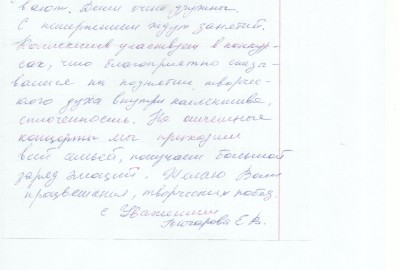 вают. Дети очень дружны.
С нетерпением ждут занятий.
Коллектив участвует в конкур-
сах, что благоприятно сказы-
вается на поднятии творчес-
кого духа внутри коллектива,
сплоченность. На отчетные
концерты мы приходим
всей семьей, получаем большой
заряд эмоций. Желаю Вам
процветания, творческих побед.
с Уважением
Гончарова Е.В.